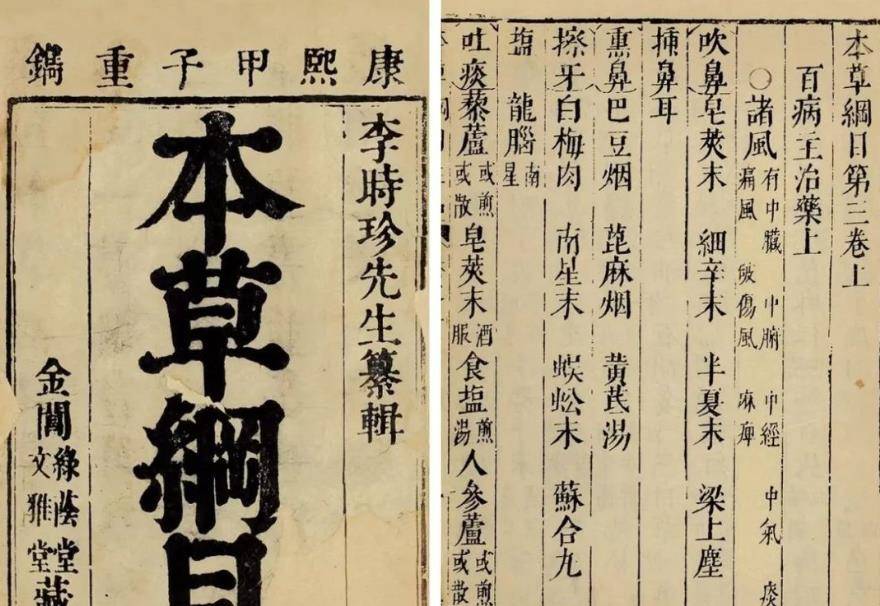 康熙甲子重鐫
李時珍先生纂輯
本草綱目
金閶
綠蔭堂
文雅堂
藏
本草綱目第三卷上
百病主治藥上
○諸風 有中臟 中腑 中經 中氣 痰
痛風 破傷風 麻痺
吹鼻皂莢末 細辛末 半夏末 梁上塵
揷鼻耳
熏鼻巴豆烟 蓖麻烟 黃芪湯
擦牙白梅肉 南星末 蜈蚣末 蘇合丸
塩 龍腦南星
吐痰藜蘆或煎或散 皂莢末酒服 食塩煎湯 人參蘆或煎或散